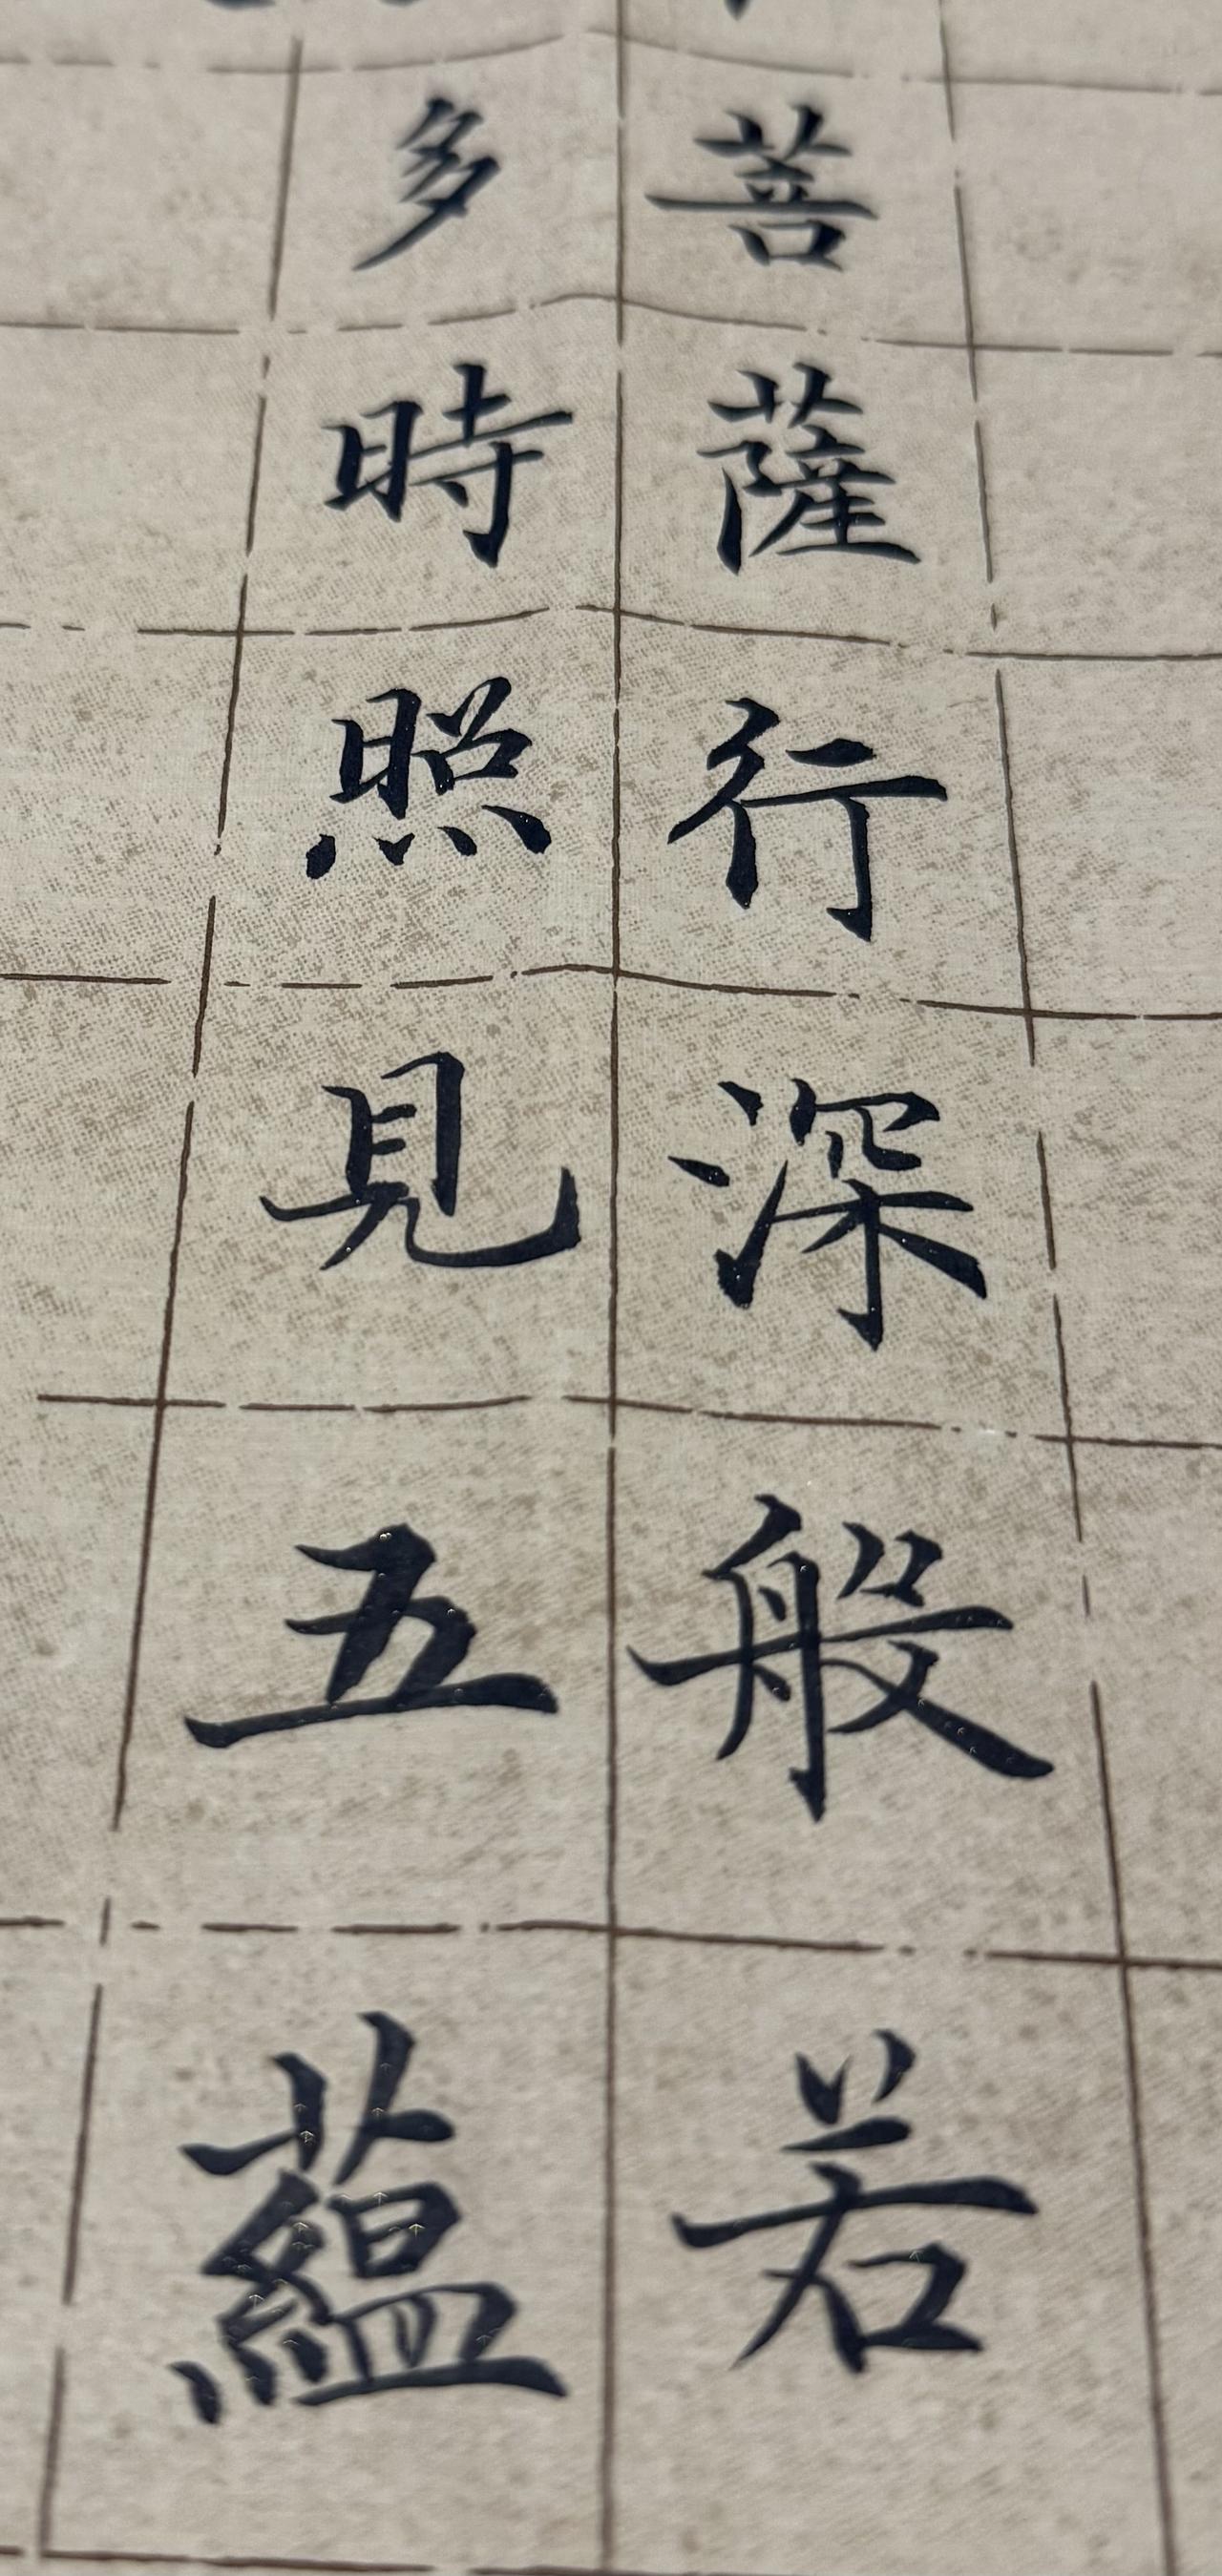 菩薩行深般若
多時照見五蘊